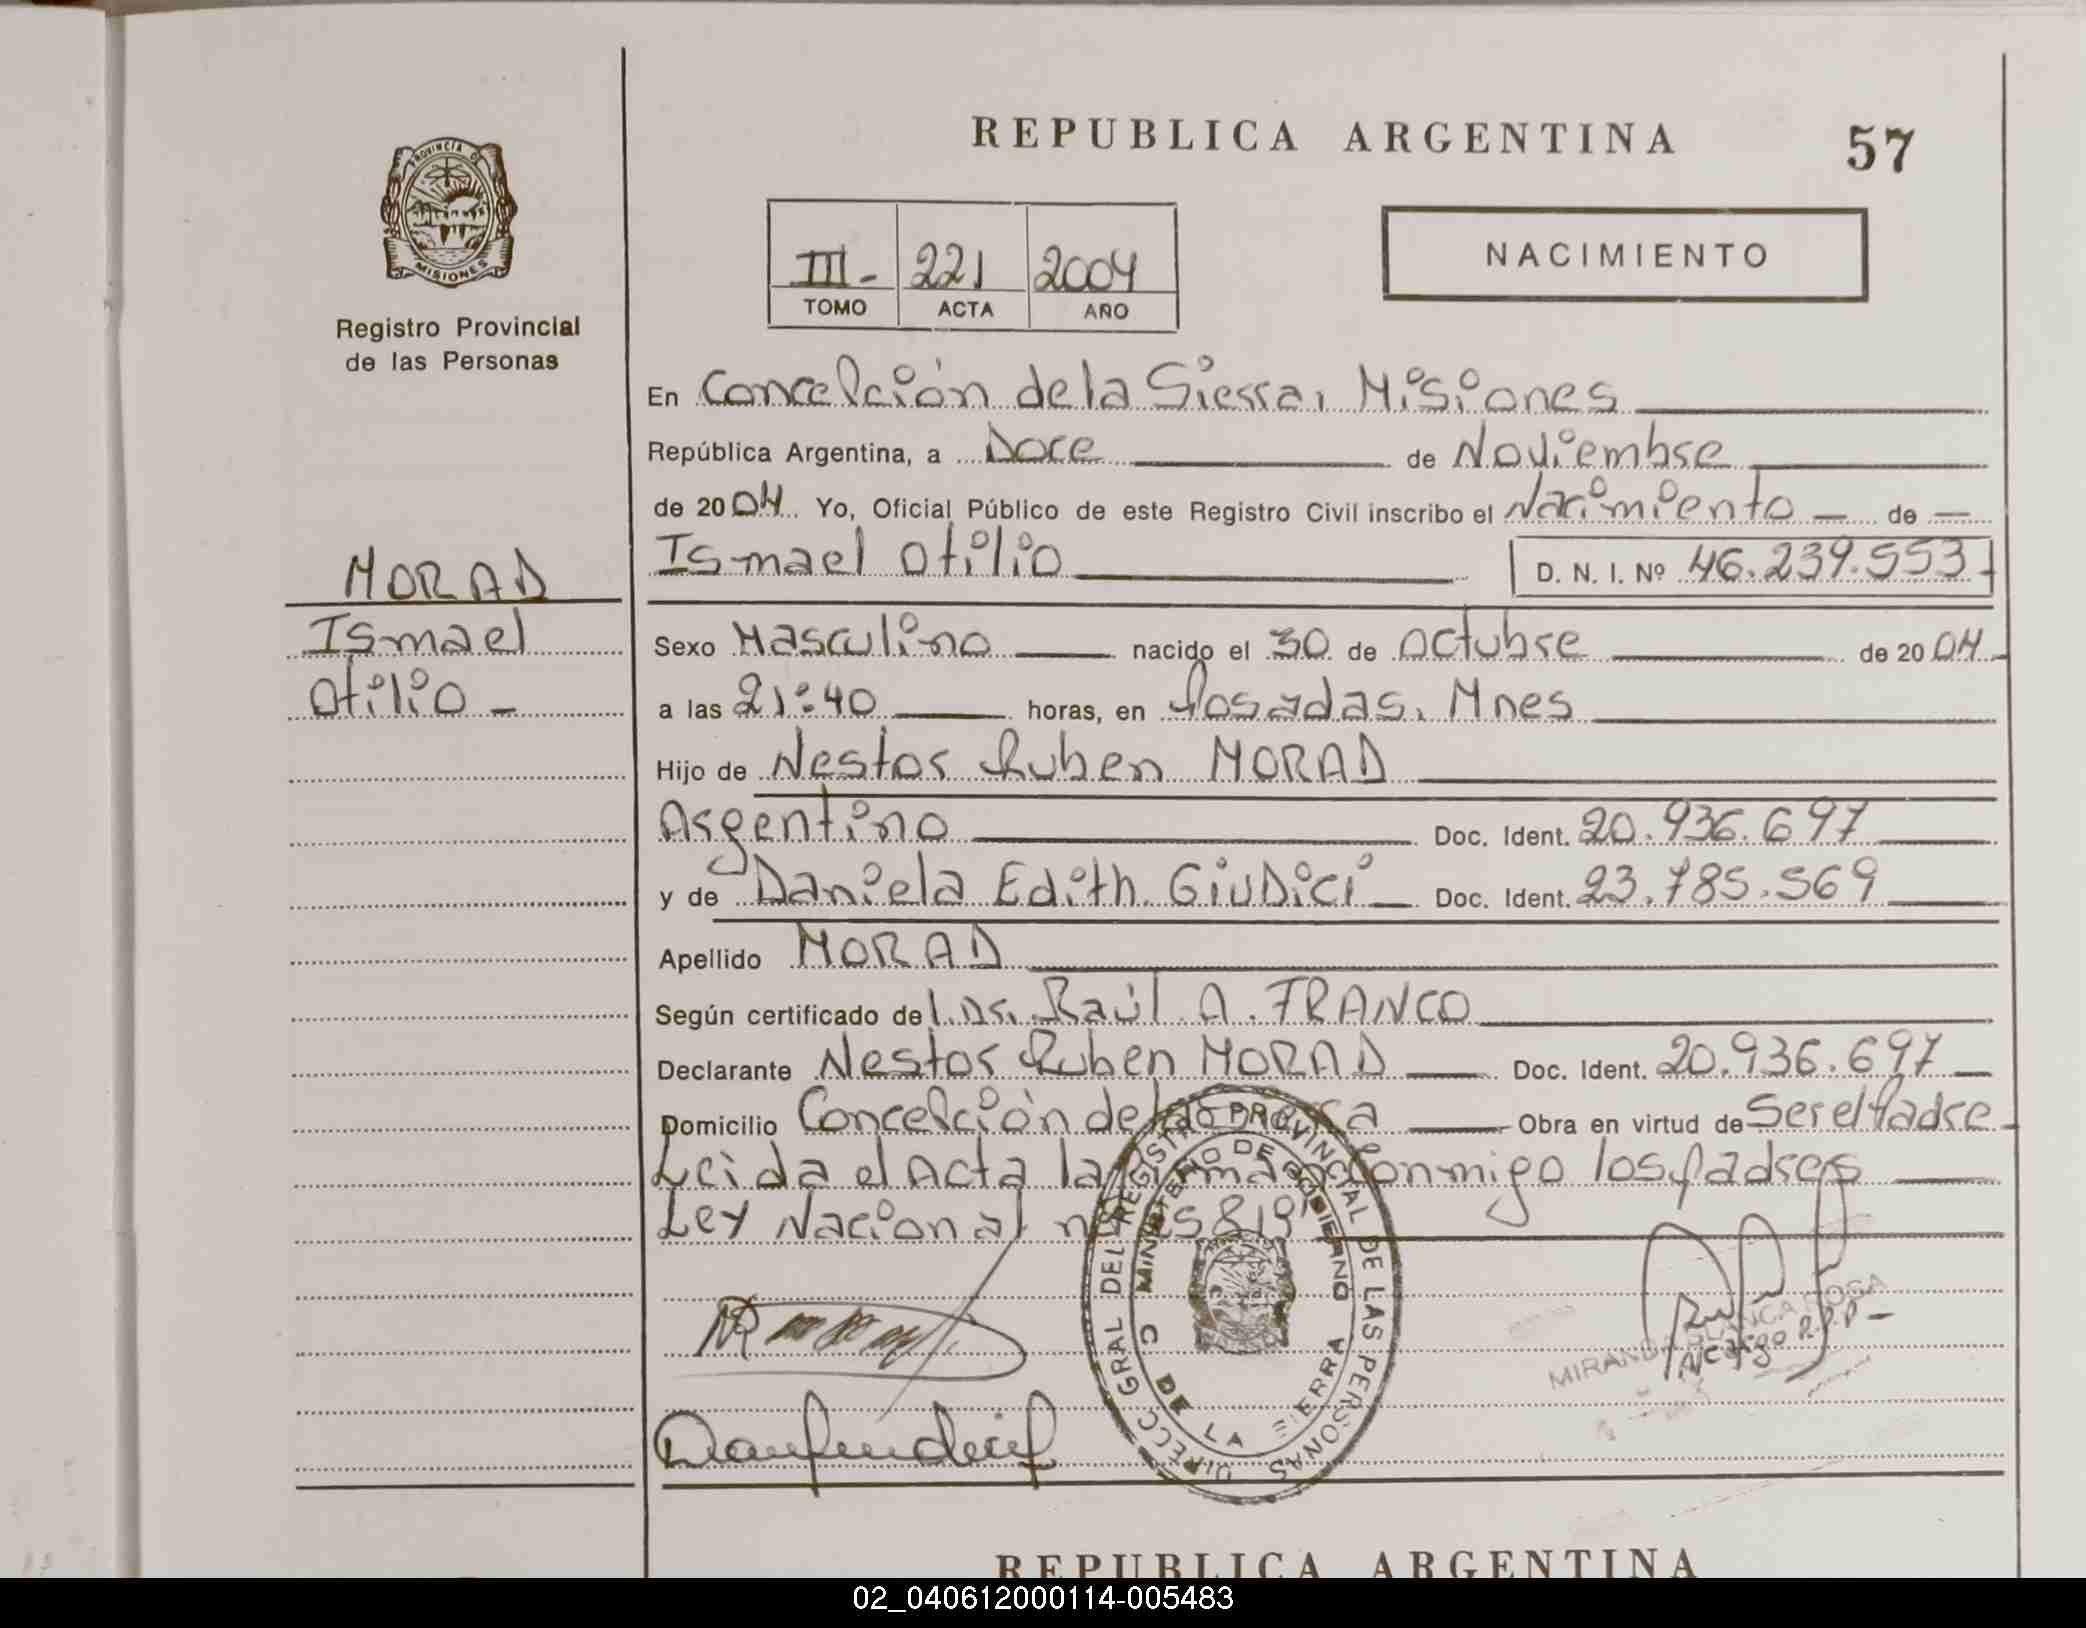 REPUBLICA ARGENTINA
57
PROVINCIA DE
MISIONES
Registro Provincial
de las Personas
III- 221 2004
TOMO ACTA AÑO
NACIMIENTO
En Concepción de la Sierra, Misiones
República Argentina, a Doce de Noviembre
de 2004 Yo, Oficial Público de este Registro Civil inscribo el Nacimiento de
Ismael Otilio D. N. I. Nº 46.239.553
MORAD
Ismael
Otilio -
Sexo Masculino nacido el 30 de Octubre de 2004
a las 21:40 horas, en Posadas, Mnes
Hijo de Nestor Ruben MORAD
Argentino Doc. Ident. 20.936.697
y de Daniela Edith GiuDici Doc. Ident. 23.785.569
Apellido MORAD
Según certificado de Dr. Raúl A. FRANCO
Declarante Nestor Ruben MORAD Doc. Ident. 20.936.697
Domicilio Concepción de la Obra en virtud de Ser el Padre
Leida el Acta la conmigo los Padres
Ley Nacional
DIRECC GRAL DEL REGISTRO PROVINCIAL DE LAS PERSONAS
MINISTERIO DE GOBIERNO
C DE LA SIERRA
MIRANDA BLANCA ROSA
REPUBLICA ARGENTINA
02_040612000114-005483